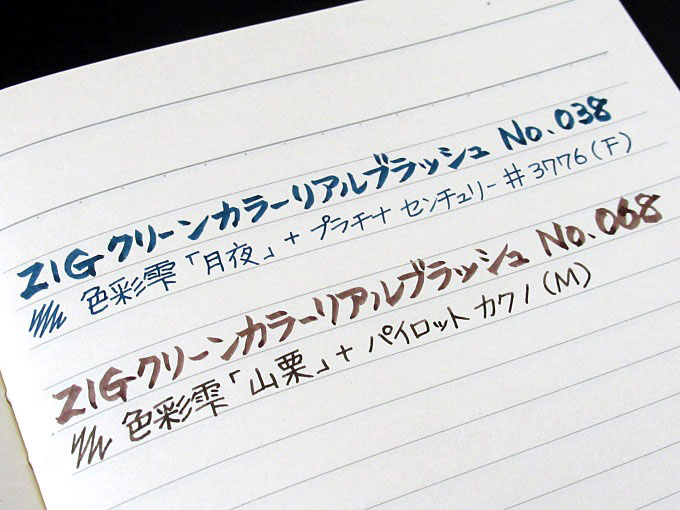 ZIGクリーンカラーリアルブラッシュ No.038
色彩雫「月夜」+ プラチナ センチュリー #3776(F)
ZIGクリーンカラーリアルブラッシュ No.068
色彩雫「山栗」+ パイロット カクノ(M)